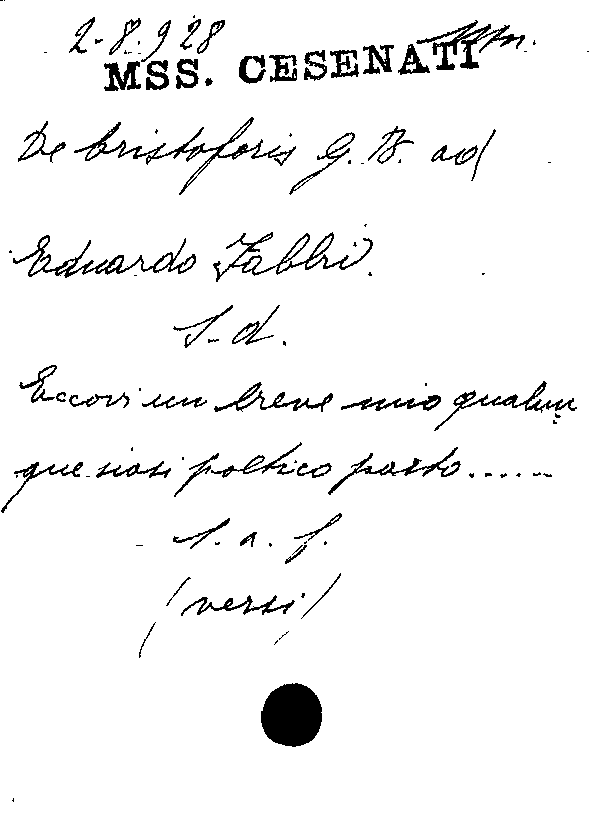 2-8-928
MSS. CESENATI
De Cristoforis G. B. ad
Eduardo Fabbri.
S. d.
Eccovi un breve mio qualun
que siasi poetico parto......
s. a. f.
(versi)